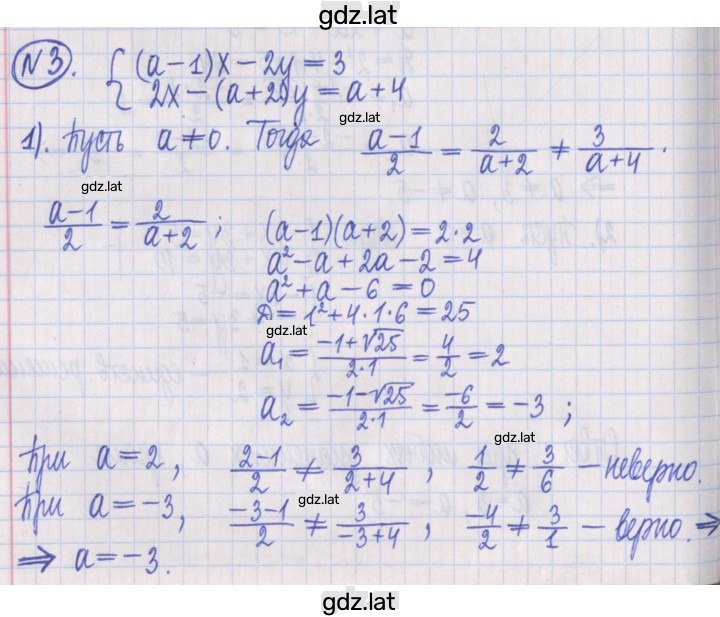 gdz.lat
№3. { (a−1)x − 2y = 3
2x − (a+2)y = a+4
gdz.lat
1). Пусть a≠0. Тогда (a−1)/2 = 2/(a+2) ≠ 3/(a+4).
gdz.lat
(a−1)/2 = 2/(a+2) ; (a−1)(a+2) = 2·2
a² − a + 2a − 2 = 4
a² + a − 6 = 0
Д = 1² + 4·1·6 = 25
gdz.lat
a₁ = (−1+√25)/(2·1) = 4/2 = 2
a₂ = (−1−√25)/(2·1) = −6/2 = −3 ;
При a = 2, (2−1)/2 ≠ 3/(2+4) , 1/2 ≠ 3/6 − неверно.
gdz.lat
При a = −3, (−3−1)/2 ≠ 3/(−3+4) , −4/2 ≠ 3/1 − верно. ⇒
⇒ a = −3.
gdz.lat